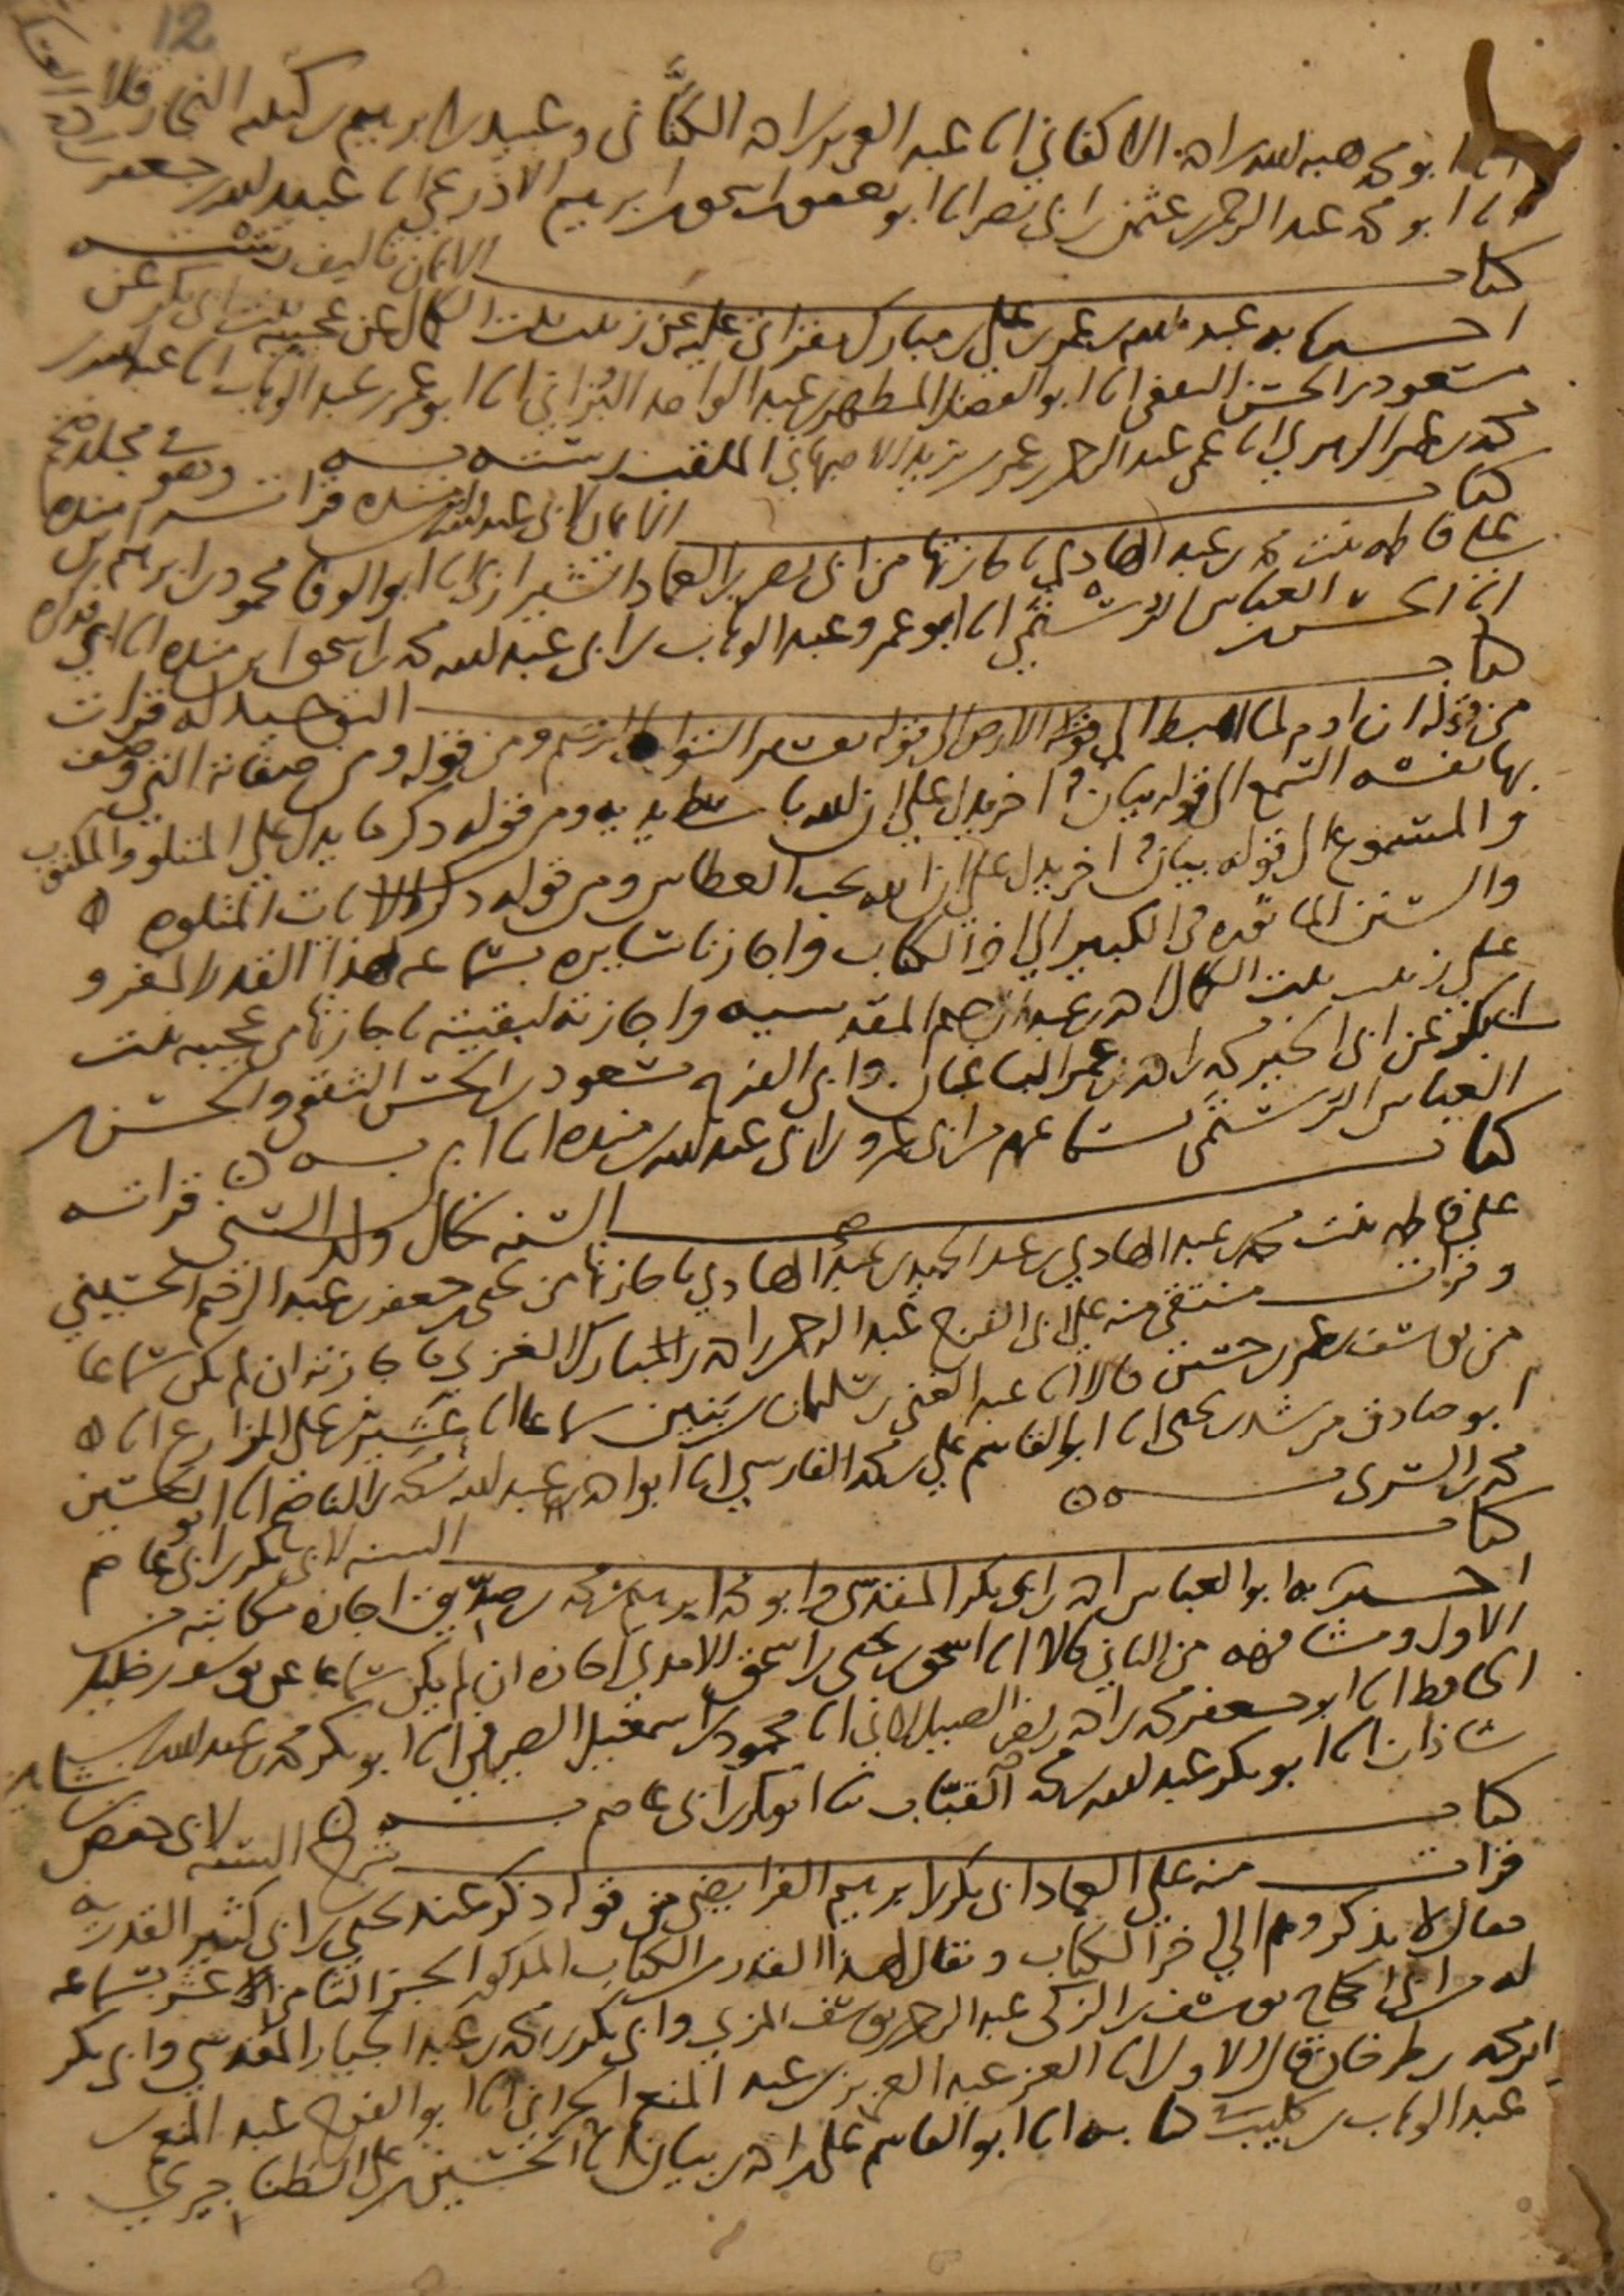 12
انا ابو محمد هبه الله بن احمد الاكفاني انا عبد العزيز بن احمد الكتَّاني وعبيد بن ابرهيم بن كبيبه النجار قالا
انا ابو محمد عبد الرحمن بن عثمن بن ابي نصر انا ابو يعقوب اسحق بن ابرهيم الاذرعي انا عبيد الله بن جعفر
كتاب الايمان تاليف رسته
اخبرنا به عبد الله بن عمر بن علي بن مبارك بقراتي عليه عن زينب بنت الكمال عن عجيبه بنت ابي بكر عن
مسعود بن الحسن الثقفي انا ابو الفضل المطهر بن عبد الواحد البُزاني انا ابو عمر بن عبد الوهاب انا عبد الله بن
محمد بن عمر الزهري انا عمي عبد الرحمن بن عمر بن يزيد الاصبهاني الملقب رسته به وهو في مجلد ضخم
كتاب الايمان لابي عبد الله بن منده قرات
على فاطمه بنت محمد بن عبد الهادي باجازتها من ابي نصر بن العماد الشيرازي انا ابو الوفا محمود بن ابرهيم بن منده
انا الحسن بن العباس الرُّستُمي انا ابو عمرو عبد الوهاب بن ابي عبد الله محمد بن اسحق ابن منده انا ابي فذكره
كتاب التوحيد له قرات
من قوله ان ادم لما اهبط الى الارض الى قوله ومن قوله ومن صفاته التي وصف
بها نفسه السمع الى قوله بيان اخر يدل على ان الله باسط يديه ومن قوله ذكر ما يدل على المتلو والمكتوب
والمسموع الى قوله بيان اخر يدل على ان الله يحب العطاس ومن قوله ذكر الايات المتلوه
والسنن الماثوره في الكبير الى اخر الكتاب واجازنا سايره بسماعه لهذا القدر المقرو
على زينب بنت الكمال احمد بن عبد الرحيم المقدسيه واجازته لبقيته باجازتها من عجيبه بنت
ابي بكر عن ابي الخير محمد بن احمد بن عمر الباغبان وابي الفرج مسعود بن الحسن الثقفي والحسن بن
العباس الرستُمي بسماعهم من ابي عمرو بن ابي عبد الله بن منده انا ابي به
كتاب السنه تكال ولد السني قراته
على فاطمه بنت محمد بن عبد الهادي بن عبد الحميد بن عبد الهادي باجازتها من يحيى بن جعفر بن عبد الرحيم الحسيني
وقرات منتقى منه على ابي الفرج عبد الرحمن بن احمد بن المبارك الغزي باجازته ان لم يكن سماعا
من يوسف بن عمر بن حسين قالا انا عبد الغني بن سليمان بن بَنين سماعا انا عشير بن علي المزارع انا
ابو صادق مرشد بن يحيى انا ابو القاسم علي بن محمد الفارسي انا ابو احمد عبد الله بن محمد بن الناصح انا ابو الحسين
محمد بن السري به
كتاب السنه لابي بكر بن ابي عاصم
اخبرنا به ابو العباس احمد بن ابي بكر المقدسي وابو محمد ابرهيم بن محمد بن صديق اجازه مكاتبه من
الاول ومشافهه من الثاني قالا انا اسحق بن يحيى بن اسحق الامدي اجازه ان لم يكن سماعا عن يوسف بن خليل
الحافظ انا ابو جعفر محمد بن احمد بن نصر الصيدلاني انا محمود بن اسمعيل الصيرفي انا ابو بكر محمد بن عبد الله بن
شاذان انا ابو بكر عبد الله بن محمد القبّاب ثنا ابو بكر بن ابي عاصم به
كتاب شرح السنه لابي حفص بن شاهين
قرات منه على العماد ابي بكر بن ابرهيم الفرايضي من قوله ذكر عند يحيى بن ابي كثير القدريه
فقال لا يذكروهم الى اخر الكتاب ويقال لهذا القدر من الكتاب المذكور الجز الثامن عشر بسماعه
له من ابي الحجاج يوسف بن الزكي عبد الرحمن بن يوسف المزي وابي بكر بن محمد بن عبد الجبار المقدسي وابي بكر
ابن محمد بن طرخان قال الاول انا العز عبد العزيز بن عبد المنعم الحراني انا ابو الفرج عبد المنعم بن
عبد الوهاب بن كليب كتابه انا ابو القاسم علي بن احمد بن بيان انا الحسين بن علي الطناجيري